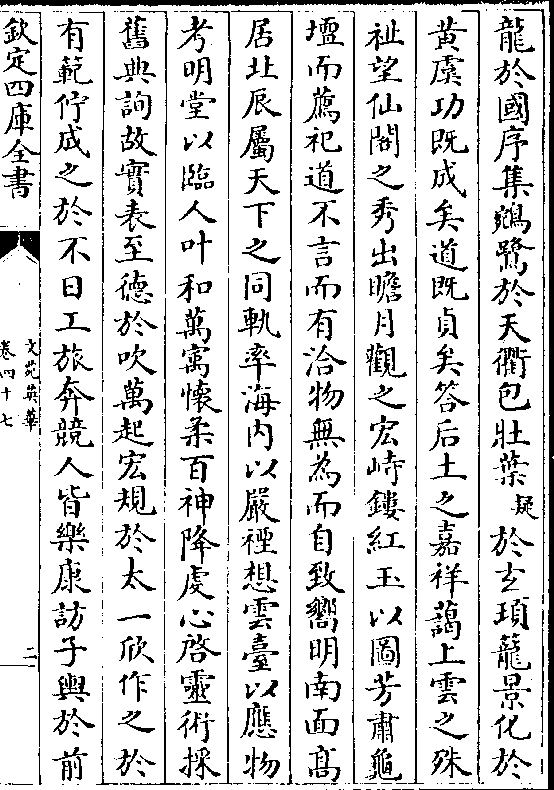 龍於國序集鵷鷺於天衢包壯葉疑於玄頊籠景化於
黃虞功既成矣道既貞矣答后土之嘉祥藹上雲之殊
祉望仙閣之秀出瞻月觀之宏峙鏤紅玉以圖芳肅龜
壇而薦祀道不言而有洽物無為而自致嚮明南面高
居北辰屬天下之同軌率海內以嚴禋想雲臺以應物
考明堂以臨人叶和萬㝢懷柔百神降虔心啓靈術採
舊典詢故實表至德於吹萬起宏規於太一欣作之於
有範佇成之於不日工旅奔競人皆樂康訪子輿於前
欽定四庫全書
文苑英華
卷四十七
二